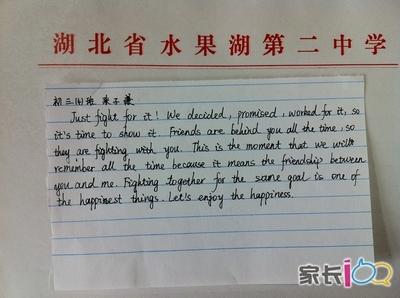 湖北省水果湖第二中学
初三(4)班 朱子潇
Just fight for it! We decided, promised, worked for it, so
it's time to show it. Friends are behind you all the time, so
they are fighting with you. This is the moment that we will
remember all the time because it means the friendship between
you and me. Fighting together for the same goal is one of
the happinest things. Let's enjoy the happiness.
家长100